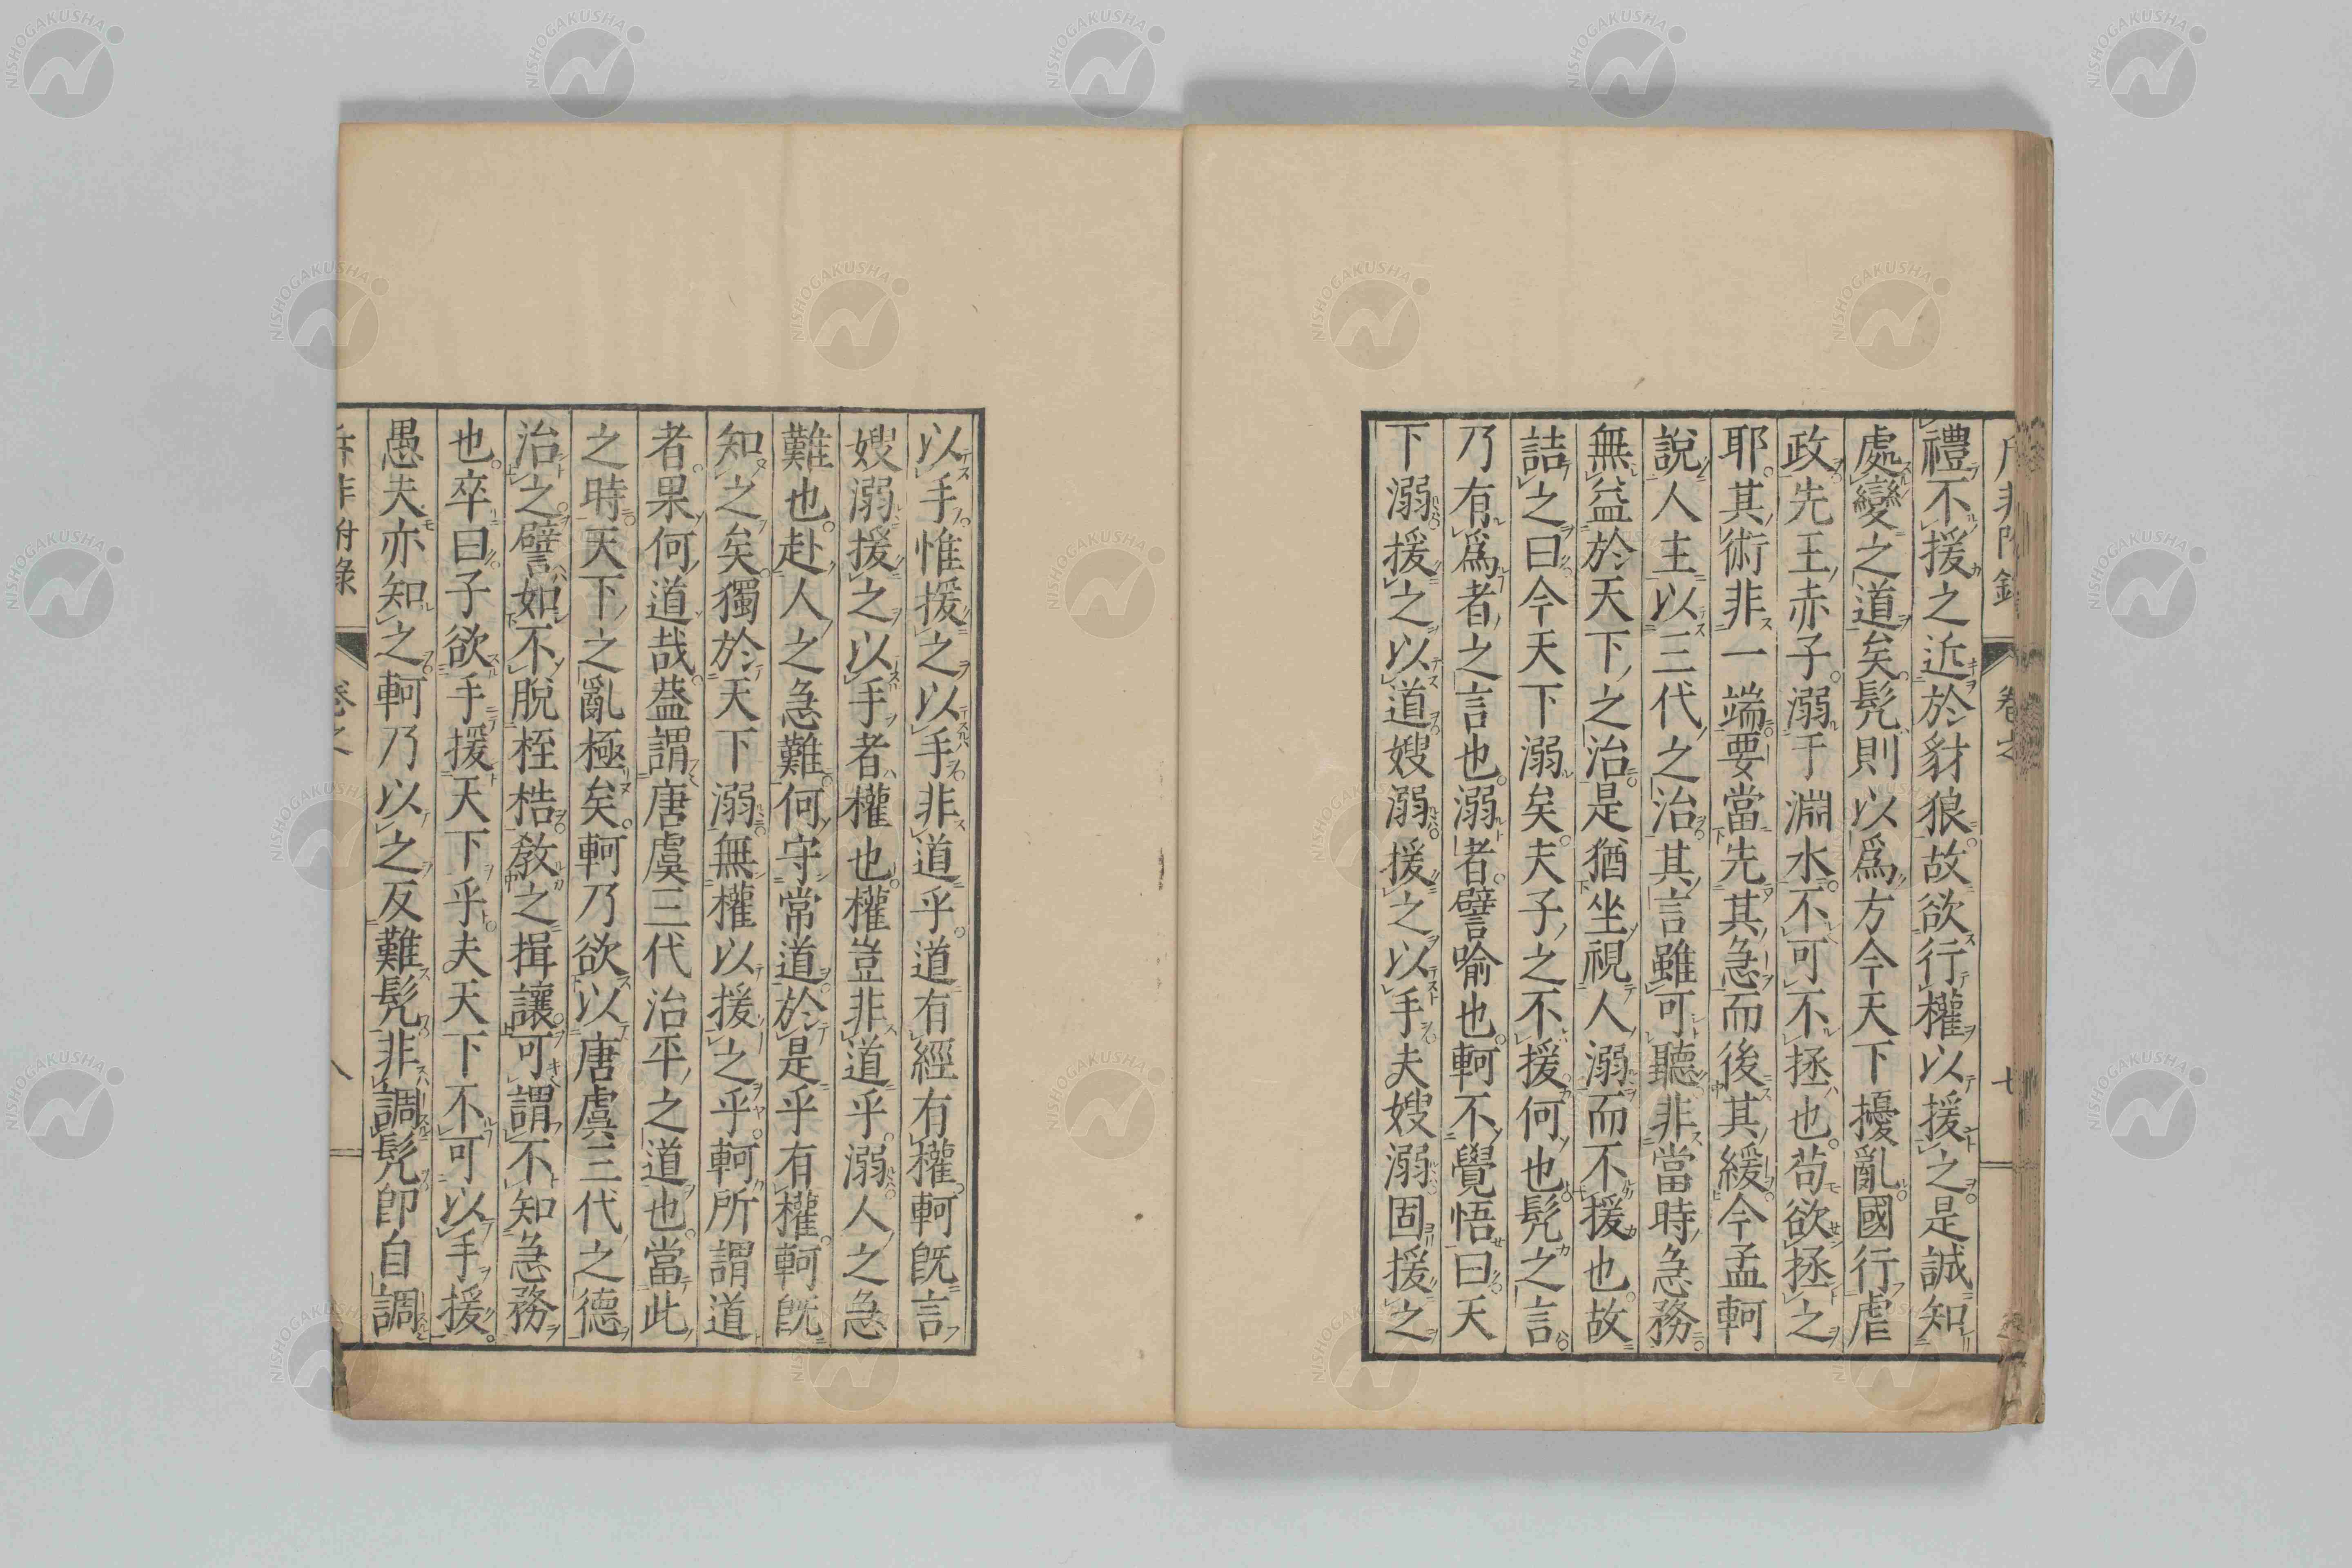 禮不援之近於豺狼故欲行權以援之是誠知
處變之道矣髡則以爲方今天下擾亂國行虐
政先王赤子溺于淵水不可不拯也苟欲拯之
耶其術非一端要當先其急而後其緩今孟軻
說人主以三代之治其言雖可聽非當時急務
無益於天下之治是猶坐視人溺而不援也故
詰之曰今天下溺矣夫子之不援何也髡之言
乃有爲者之言也溺者譬喻也軻不覺悟曰天
下溺援之以道嫂溺援之以手夫嫂溺固援之
以手惟援之以手非道乎道有經有權軻旣言
嫂溺援之以手者權也權豈非道乎溺人之急
難也赴人之急難何守常道於是乎有權軻旣
知之矣獨於天下溺無權以援之乎軻所謂道
者果何道哉蓋謂唐虞三代治平之道也當此
之時天下之亂極矣軻乃欲以唐虞三代之德
治之譬如不脫桎梏教之揖讓可謂不知急務
也卒曰子欲手援天下乎夫天下不可以手援
愚夫亦知之軻乃以之反難髡非調髡卽自調
非附錄 卷之 八
NISHOGAKUSHA